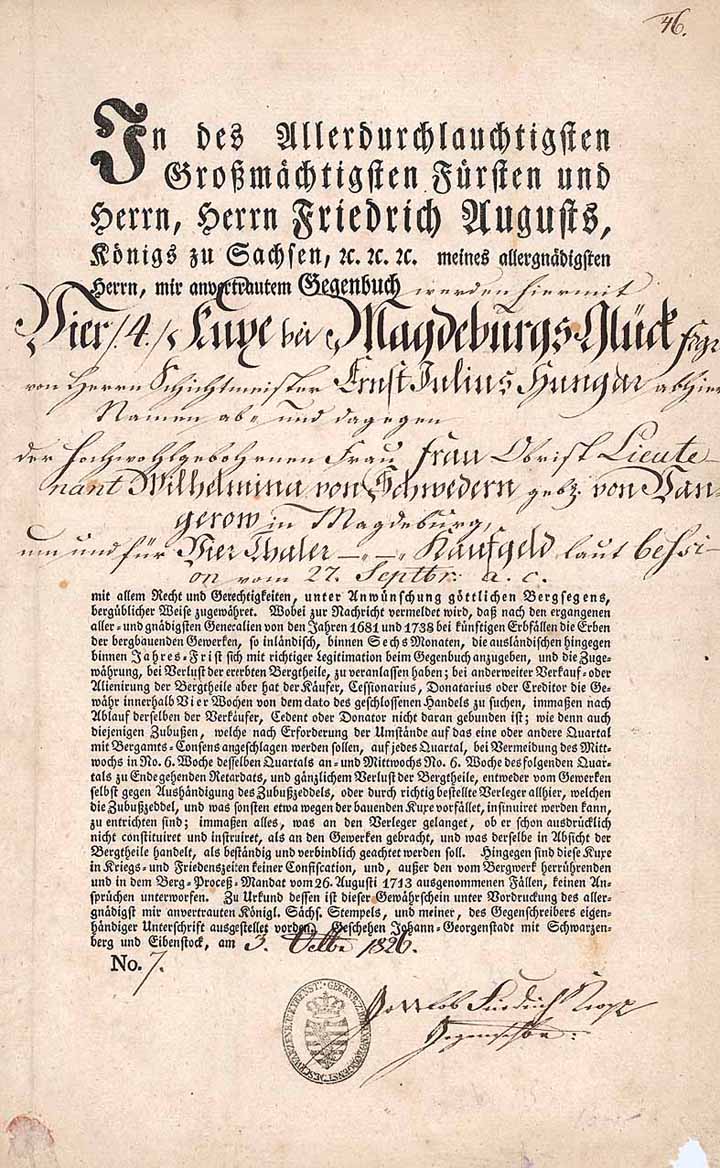 46.
In des Allerdurchlauchtigsten
Großmächtigsten Fürsten und
Herrn, Herrn Friedrich Augusts,
Königs zu Sachsen, ꝛc. ꝛc. ꝛc. meines allergnädigsten
Herrn, mir anvertrautem Gegenbuch werden hiermit
Vier /.4./ Kuxe bei Magdeburgs-Glück
von Herrn Schichtmeister Ernst Julius Hungar
Namen ab- und dagegen
der Hochwohlgebohrnen Frau, Frau Obrist Lieute-
nant Wilhelmina von Schwedern gebr. von Van-
gerow in Magdeburg,
um und für Vier Thaler — „ — Kaufgeld laut Cessi-
on vom 27. Septbr: a. c.
mit allem Recht und Gerechtigkeiten, unter Anwünschung göttlichen Bergsegens,
bergüblicher Weise zugewähret. Wobei zur Nachricht vermeldet wird, daß nach den ergangenen
aller- und gnädigsten Generalien von den Jahren 1681 und 1738 bei künftigen Erbfällen die Erben
der bergbauenden Gewerken, so inländisch, binnen Sechs Monaten, die ausländischen hingegen
binnen Jahres-Frist sich mit richtiger Legitimation beim Gegenbuch anzugeben, und die Zuge-
währung, bei Verlust der ererbten Bergtheile, zu veranlassen haben; bei anderweiter Verkauf- oder
Alienirung der Bergtheile aber hat der Käufer, Cessionarius, Donatarius oder Creditor die Ge-
währ innerhalb Vier Wochen von dem dato des geschlossenen Handels zu suchen, immaßen nach
Ablauf derselben der Verkäufer, Cedent oder Donator nicht daran gebunden ist; wie denn auch
diejenigen Zubußen, welche nach Erforderung der Umstände auf das eine oder andere Quartal
mit Bergamts-Consens angeschlagen werden sollen, auf jedes Quartal, bei Vermeidung des Mitt-
wochs in No. 6. Woche desselben Quartals an- und Mittwochs No. 6. Woche des folgenden Quar-
tals zu Ende gehenden Retardats, und gänzlichem Verlust der Bergtheile, entweder vom Gewerken
selbst gegen Aushändigung des Zubußzeddels, oder durch richtig bestellte Verleger allhier, welchen
die Zubußzeddel, und was sonsten etwa wegen der bauenden Kuxe vorfället, insinuiret werden kann,
zu entrichten sind; immaßen alles, was an den Verleger gelanget, ob er schon ausdrücklich
nicht constituiret und instruiret, als an den Gewerken gebracht, und was derselbe in Absicht der
Bergtheile handelt, als beständig und verbindlich geachtet werden soll. Hingegen sind diese Kuxe
in Kriegs- und Friedenszeiten keiner Confiscation, und, außer den vom Bergwerk herrührenden
und in dem Berg-Proceß-Mandat vom 26. Augusti 1713 ausgenommenen Fällen, keinen An-
sprüchen unterworfen. Zu Urkund dessen ist dieser Gewährschein unter Vordruckung des aller-
gnädigst mir anvertrauten Königl. Sächs. Stempels, und meiner, des Gegenschreibers eigen-
händiger Unterschrift ausgestellet worden. Geschehen Johann-Georgenstadt mit Schwarzen-
berg und Eibenstock, am 3. Octbr 1826.
No. 7.
Gottlob Friedrich